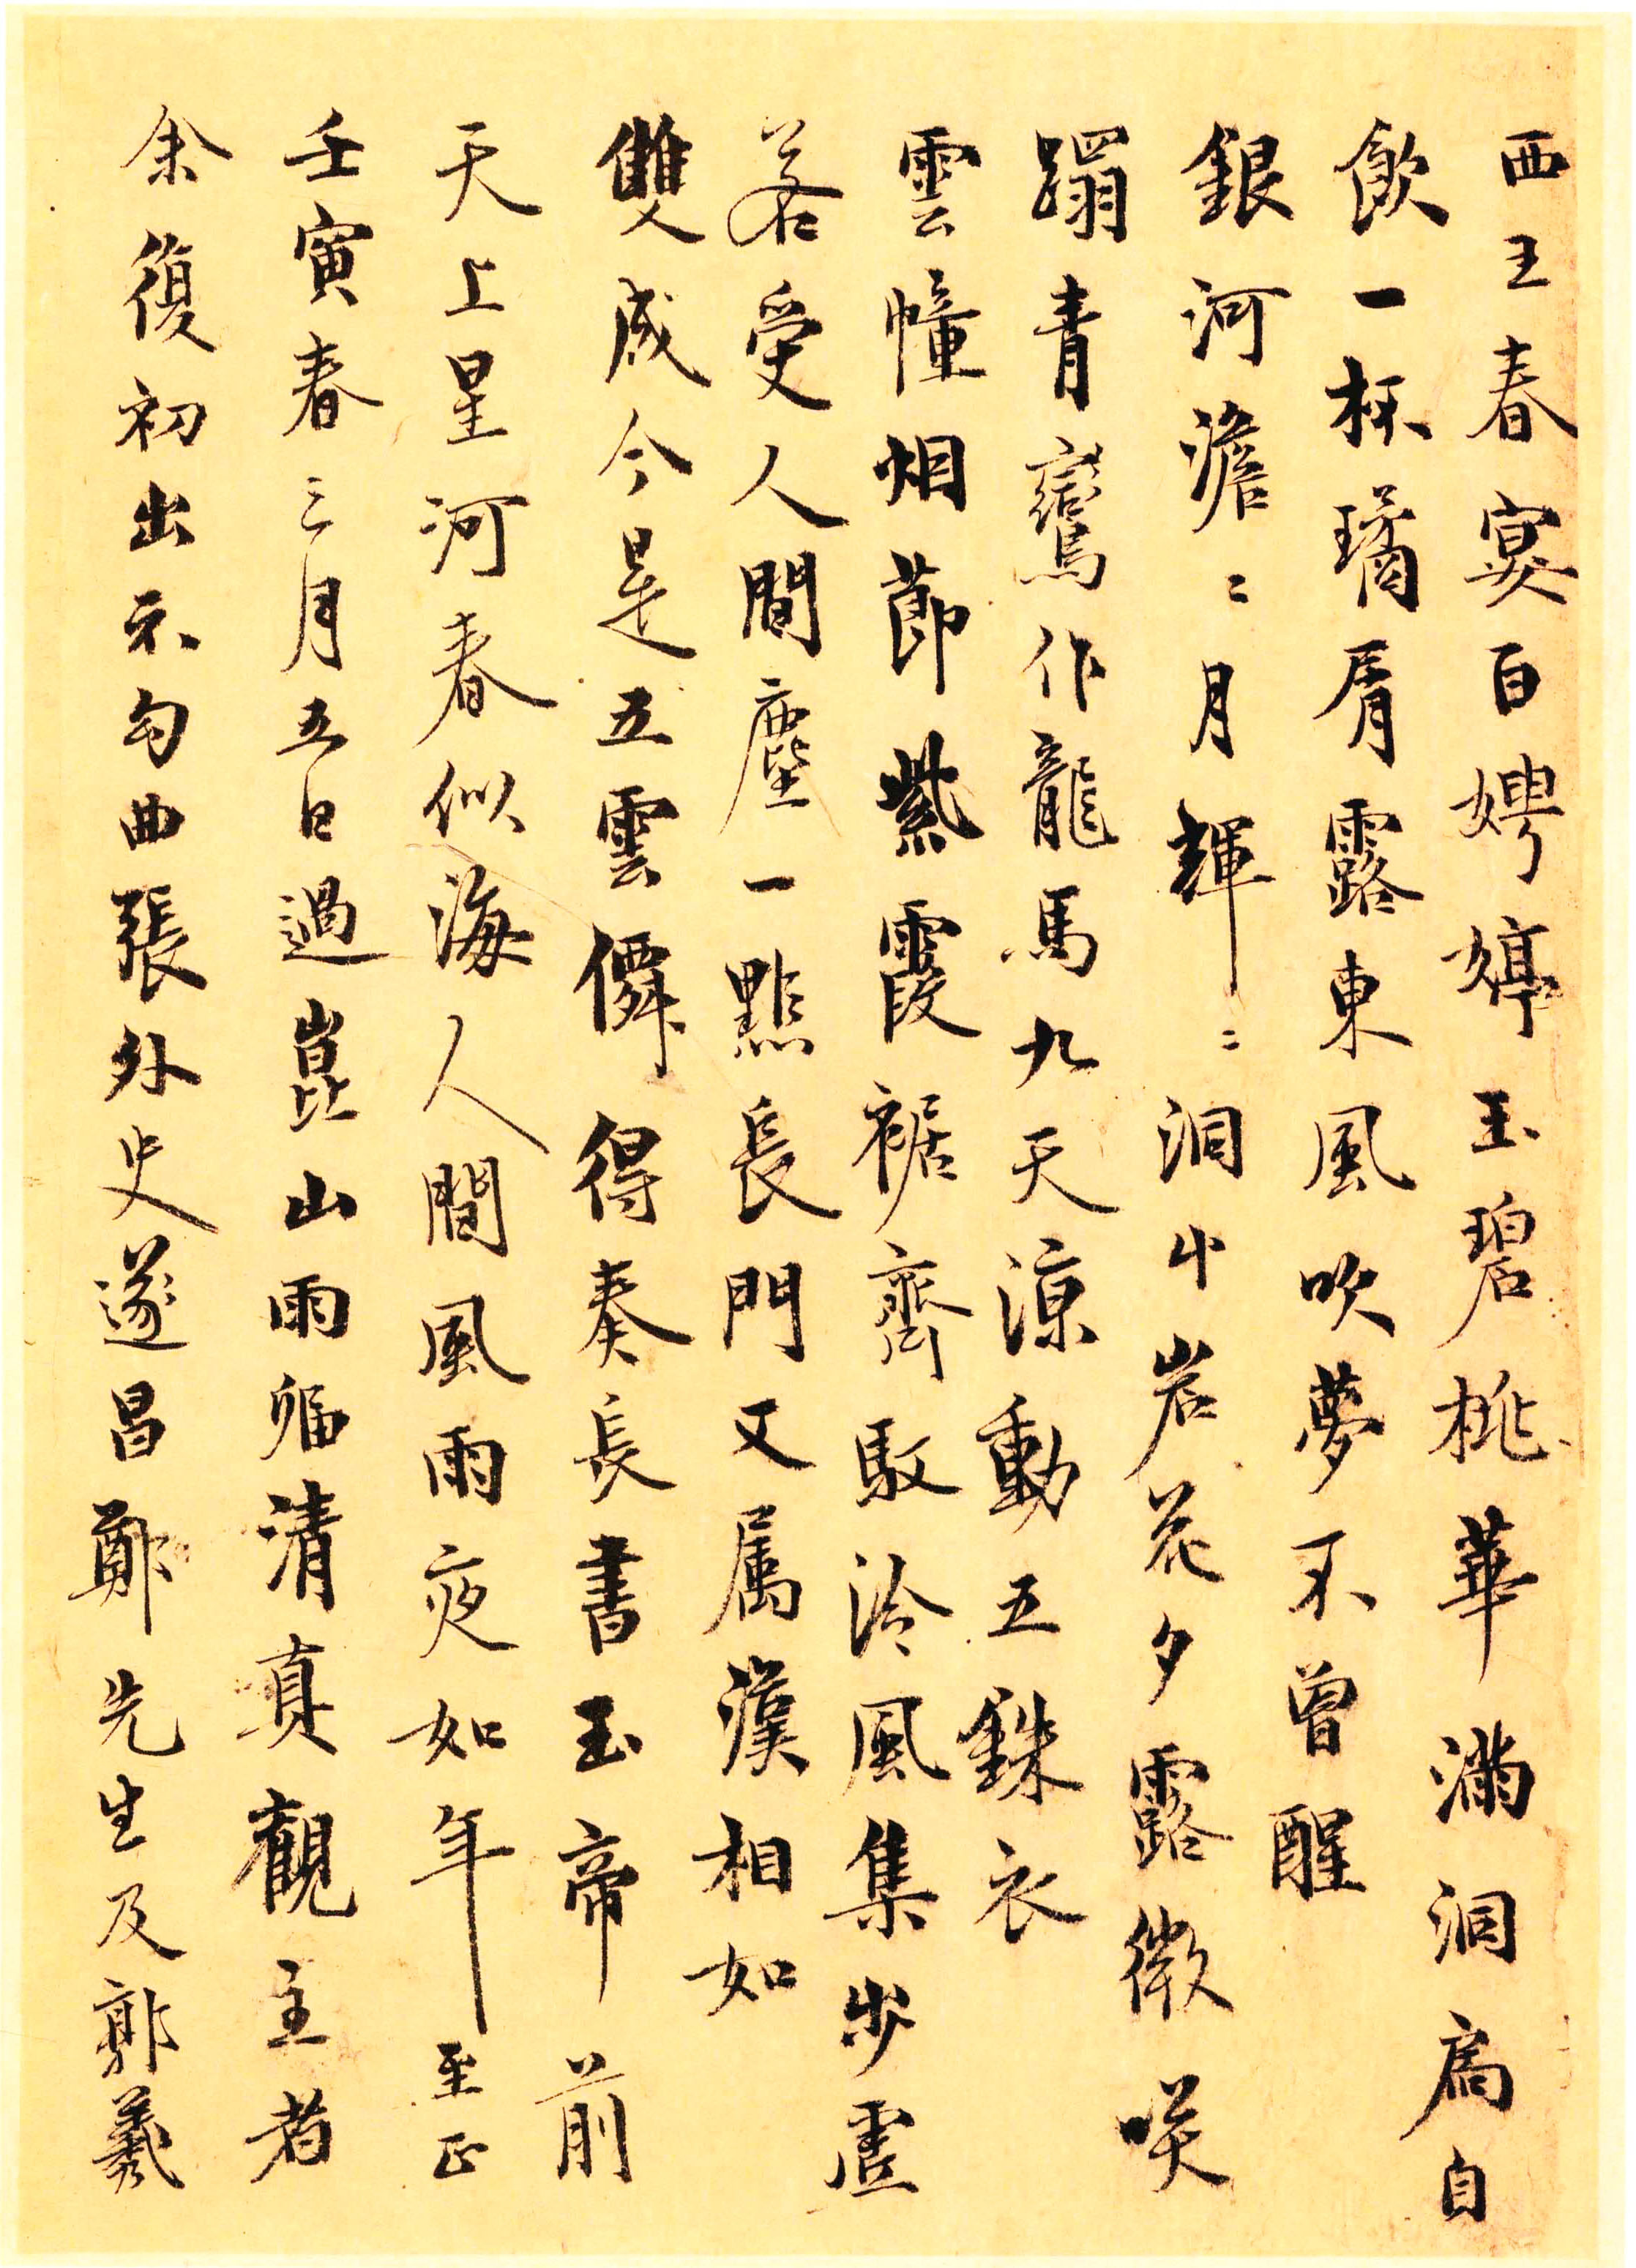 西王春宴百娉婷玉碧桃華滿洞扃自
飲一杯璚屑露東風吹夢不曾醒
銀河澹〻月輝〻洞中岩花夕露微咲
躢青鸞作龍馬九天涼動五銖衣
雲幢烟節紫霞裾齊馭泠風集步虛
若受人間塵一點長門又属漢相如
雙成今是五雲僊得奏長書玉帝前
天上星河春似海人間風雨夜如年至正
壬寅春三月五日過崑山雨留清真觀主者
余復初出示句曲張外史遂昌鄭先生及郭羲